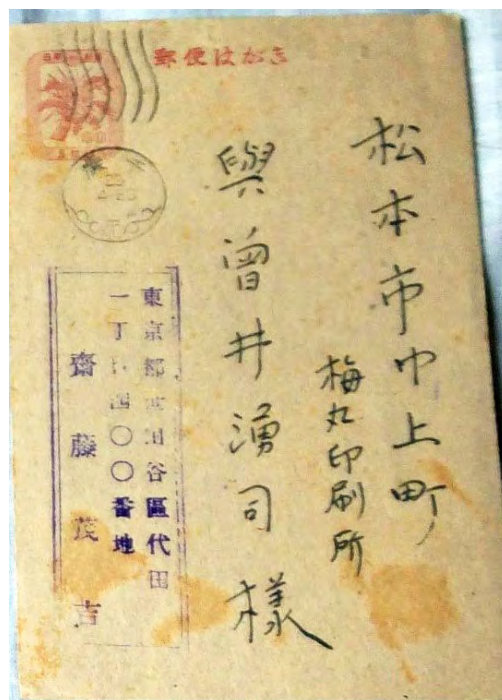 郵便はがき
松本市中上町
梅丸印刷所
與曾井湧司様
東京都世田谷區代田
一丁目四〇〇番地
齋藤茂吉